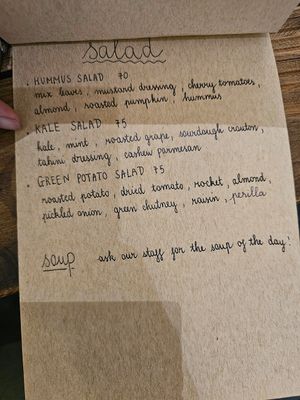 Salad
. HUMMUS SALAD 70
mix leaves, mustard dressing, cherry tomatoes,
almond, roasted pumpkin, hummus
. KALE SALAD 75
kale, mint, roasted grape, sourdough crouton,
tahini dressing, cashew parmesan
. GREEN POTATO SALAD 75
roasted potato, dried tomato, rocket, almond,
pickled onion, green chutney, raisin, perilla
soup ask our staff for the soup of the day!